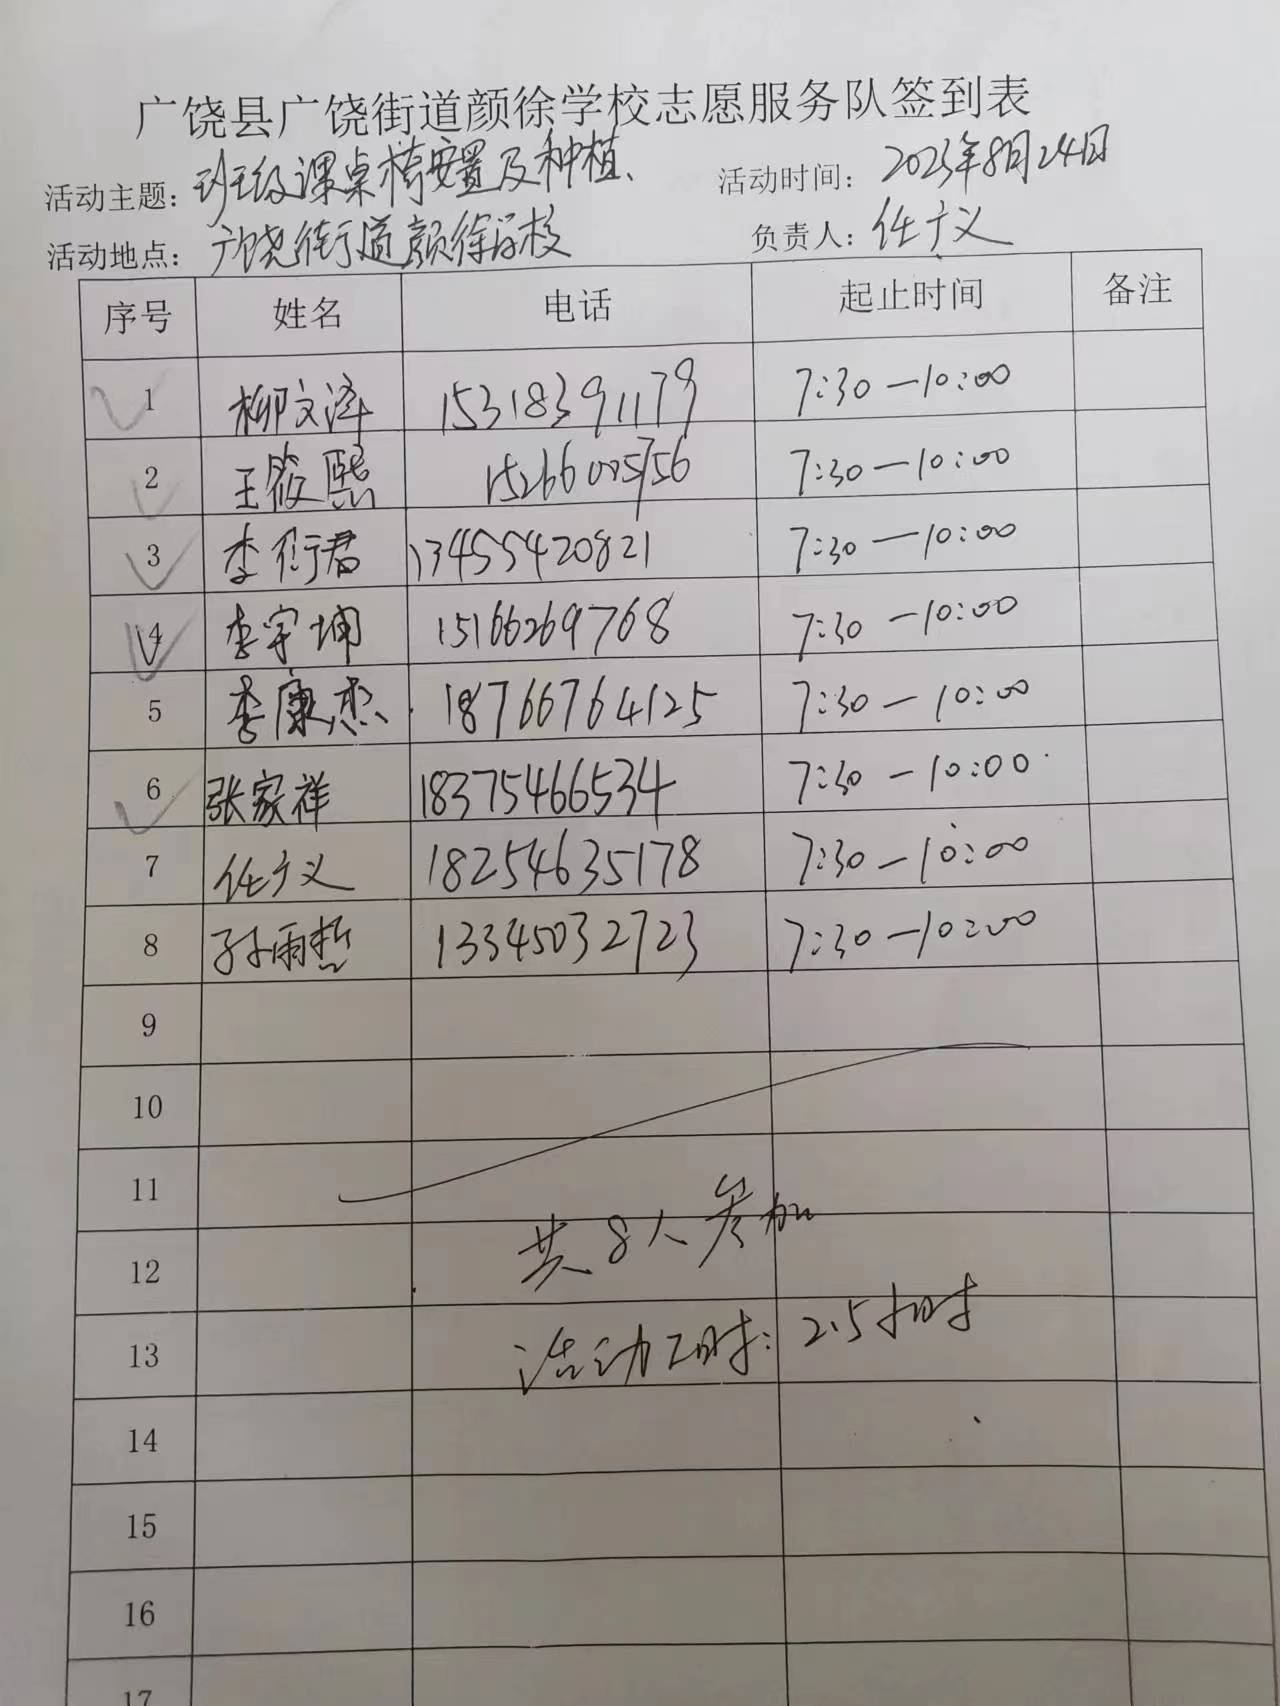 广饶县广饶街道颜徐学校志愿服务队签到表
活动主题：班级课桌椅安置及种植、 活动时间：2023年8月24日
活动地点：广饶街道颜徐学校 负责人：任广义
序号 姓名 电话 起止时间 备注
1 柳文泽 15318391179 7:30—10:00
2 王筱熙 15266005756 7:30—10:00
3 李衍君 13455420821 7:30—10:00
4 李宇坤 15166269768 7:30—10:00
5 李康杰 18766764125 7:30—10:00
6 张家祥 18375466534 7:30—10:00
7 任广义 18254635178 7:30—10:00
8 孙雨哲 13345032723 7:30—10:00
9
10
11
共8人参加
12
13 活动工时：2.5小时
14
15
16
17